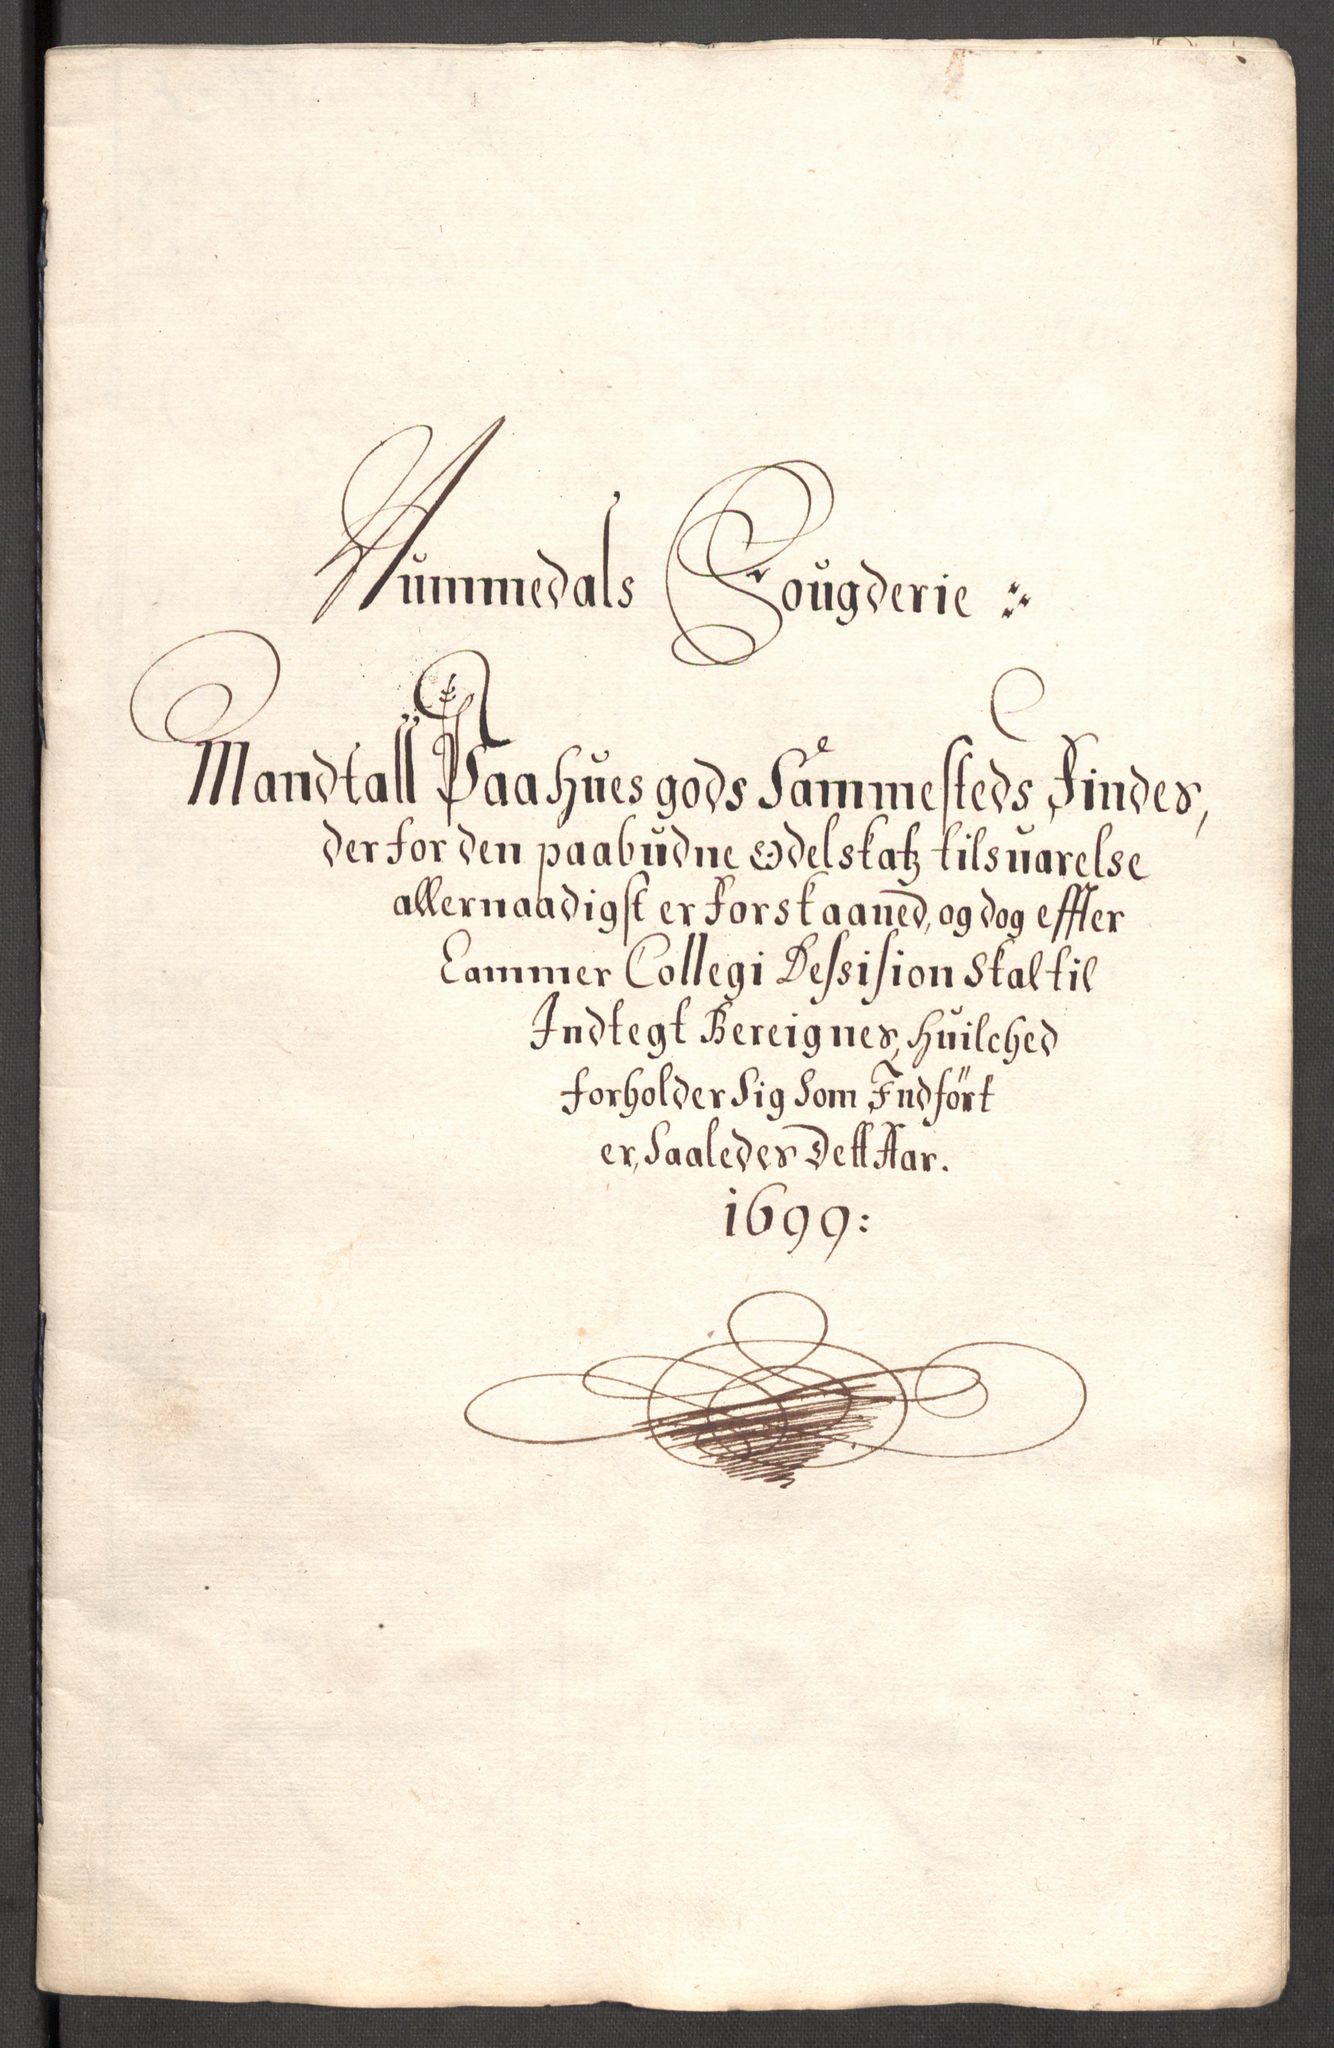 Nummedals Fougderie
Mandtall Paa hues gods Sammesteds Findes,
der for den paabudne odelskatz tilsuarelse
allernaadigst er Forskaaned, og dog effter
Cammer Collegi Dessision Skal til
Indtegt Bereignes, huilched
forholder Sig Som Indfört
er, Saaledes Dett Aar.
1699: